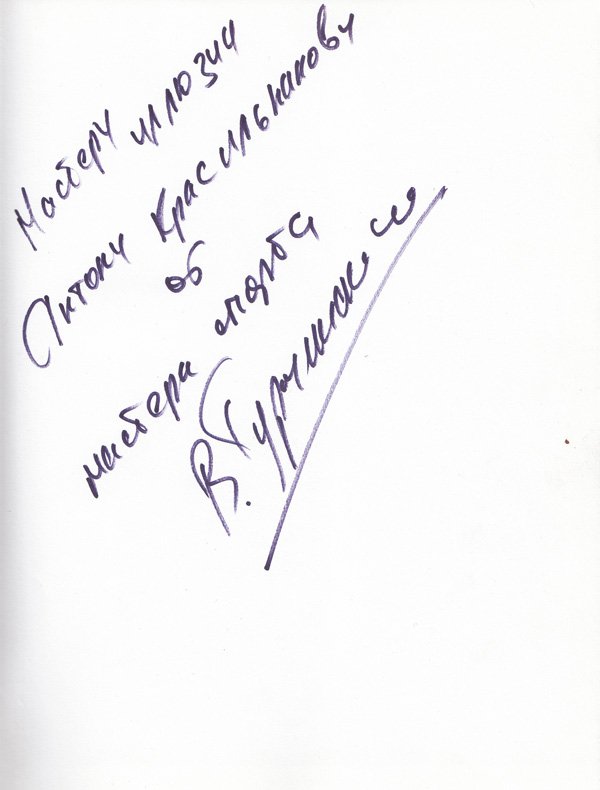 Мастеру иллюзии
Антону Красильникову
от
мастера спорта
В. Турчинский